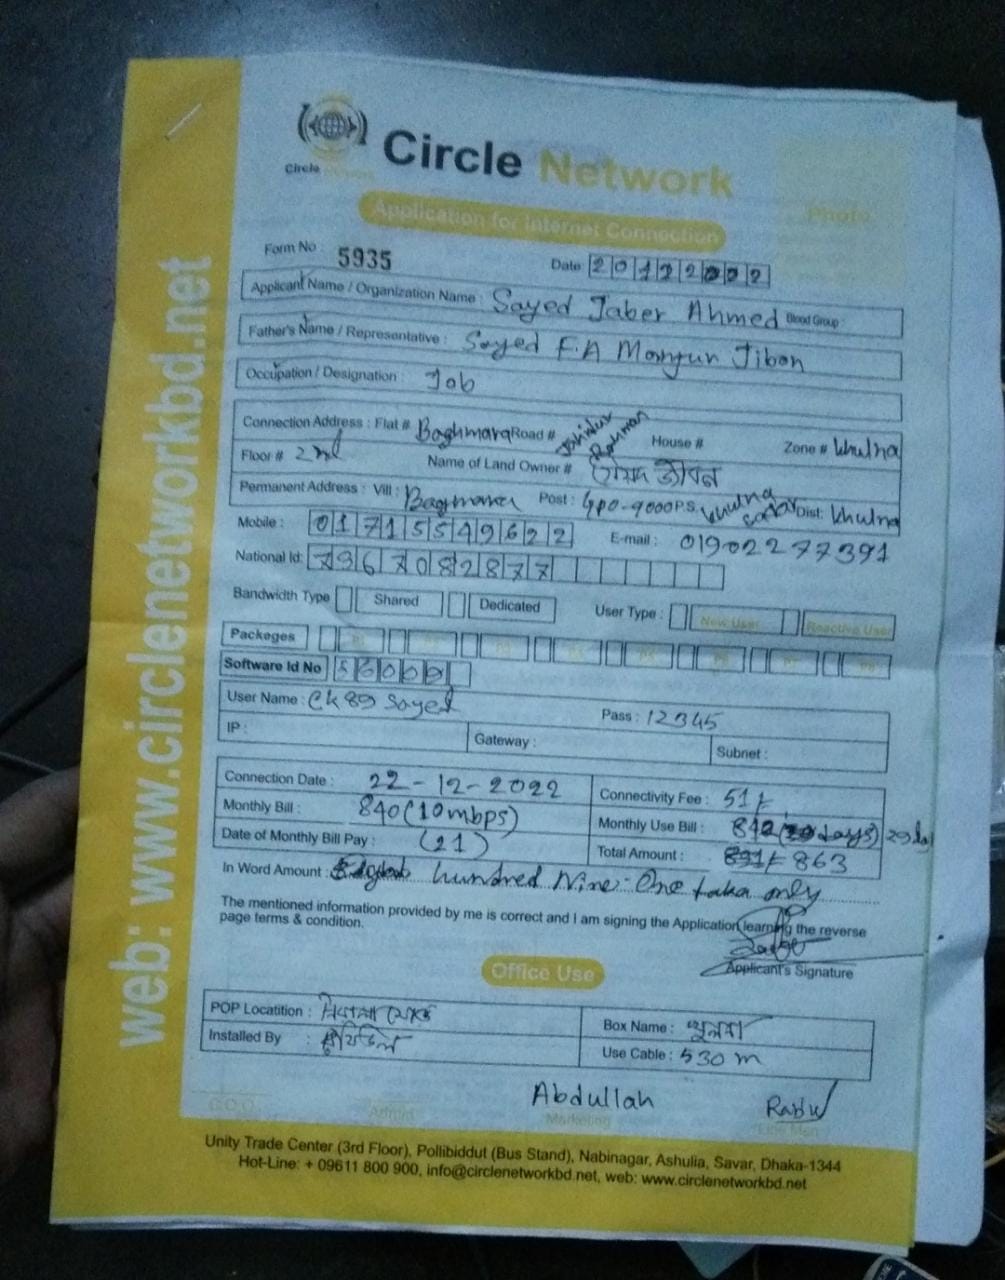 Circle Network
Circle
Photo
Application for Internet Connection
Form No : 5935
Date 20122022
Applicant Name / Organization Name : Sayed Jaber Ahmed Blood Group :
Father's Name / Representative : Sayed F.A Jibon
Occupation / Designation : Job
Connection Address : Flat # Baghmara Road # Rahman House # Zone # Khulna
Floor # 2nd Name of Land Owner #
Permanent Address : Vill : Bagmara Post : GPO-9000 P.S. Khulna Sadar Dist: Khulna
Mobile : 01715549622 E-mail : 01902277391
National Id: 7367082877
Bandwidth Type Shared Dedicated User Type : New User Reactive User
Packeges
Software Id No 56009
User Name : Ck89 Sayed Pass : 12345
IP : Gateway : Subnet :
Connection Date : 22-12-2022 Connectivity Fee : 51/-
Monthly Bill : 840 (10mbps) Monthly Use Bill : 812 days)
Date of Monthly Bill Pay : (21) Total Amount : 863
In Word Amount : hundred Nine-One taka only
The mentioned information provided by me is correct and I am signing the Application learning the reverse
page terms & condition.
Applicant's Signature
Office Use
POP Locatition : Box Name : খুলনা
Installed By : Use Cable : 530 m
Abdullah
C.O.O. Admin Marketing Line Man
web: www.circlenetworkbd.net
Unity Trade Center (3rd Floor), Pollibiddut (Bus Stand), Nabinagar, Ashulia, Savar, Dhaka-1344
Hot-Line: + 09611 800 900, info@circlenetworkbd.net, web: www.circlenetworkbd.net